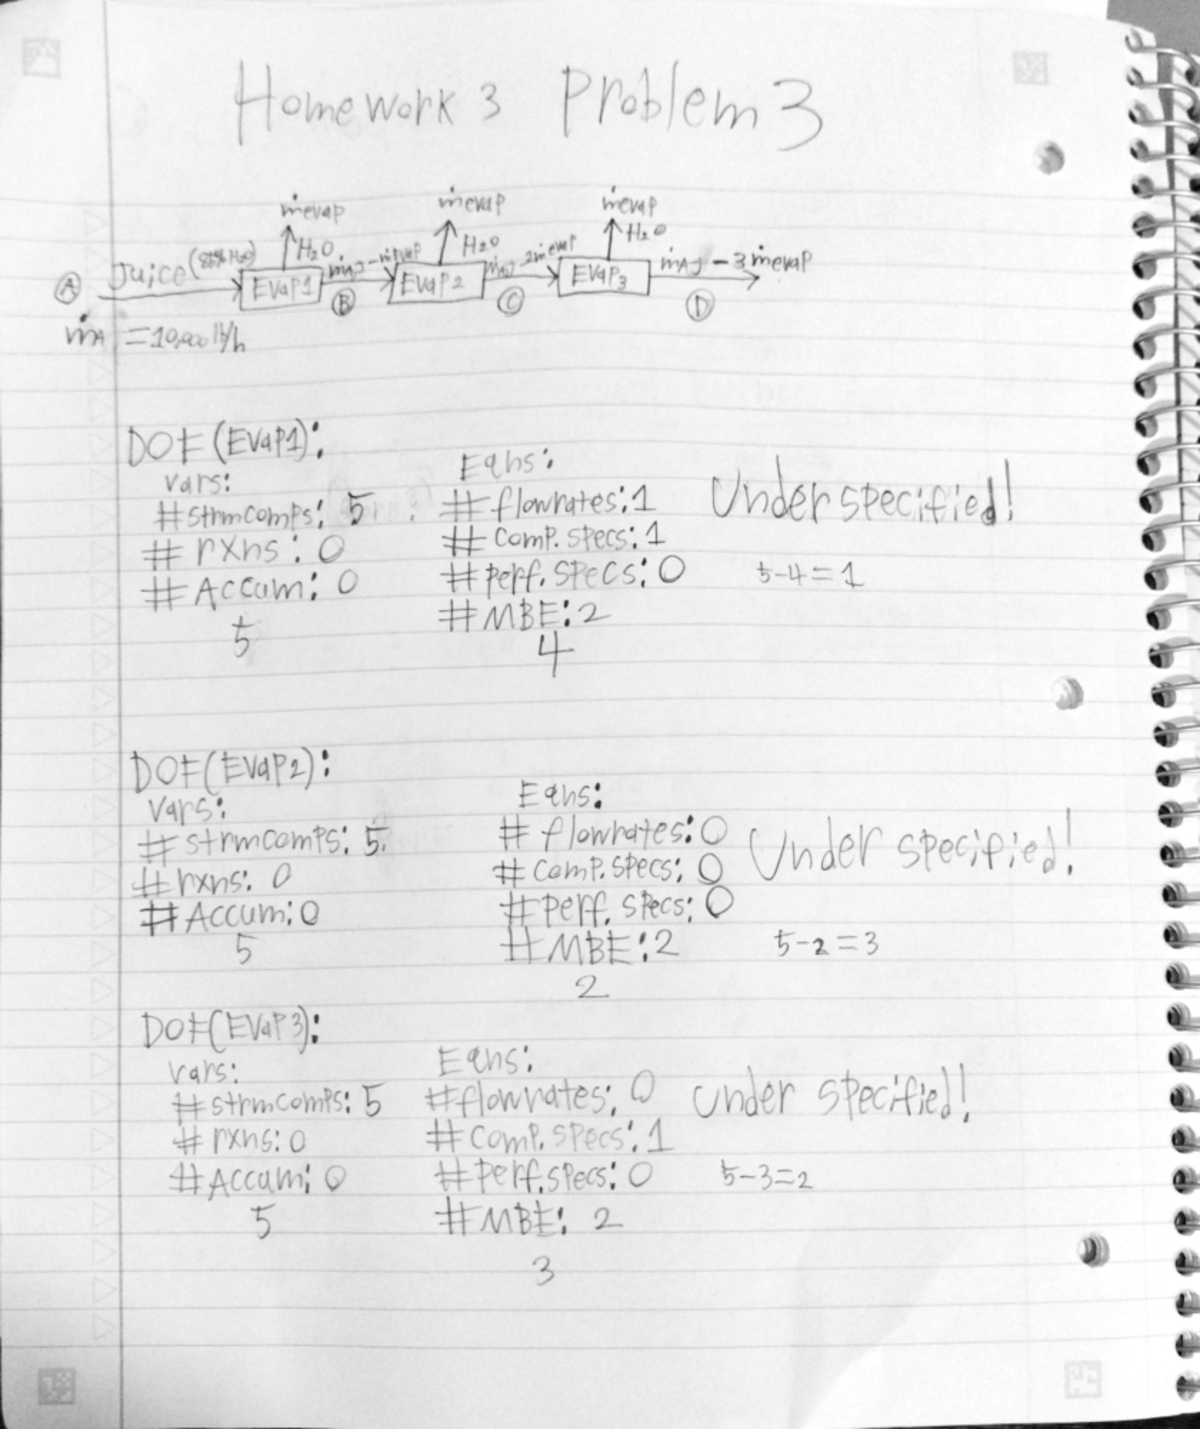 Homework 3 Problem 3
ṁevap ṁevap ṁevap
H₂O H₂O H₂O
Juice (88% H₂O) Evap1 ṁAJ - ṁevap Evap2 ṁAJ - 2ṁevap Evap3 ṁAJ - 3ṁevap
A B C D
ṁA = 10,000 lb/h
DOF(Evap1):
vars: Eqns:
#strmcomps: 5 #flowrates: 1 Underspecified!
# rxns: 0 # comp. specs: 1
# Accum: 0 # perf. specs: 0 5-4=1
5 #MBE: 2
4
DOF(Evap2):
Vars: Eqns:
# strmcomps: 5 # flowrates: 0 Under specified!
#rxns: 0 # comp. specs: 0
# Accum: 0 #perf. specs: 0
5 #MBE: 2 5-2=3
2
DOF(Evap3):
vars: Eqns:
#strmcomps: 5 #flowrates: 0 under specified!
# rxns: 0 # comp. specs: 1
#Accum: 0 #perf. specs: 0 5-3=2
5 #MBE: 2
3